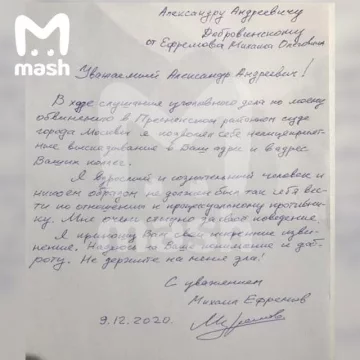 mash
Александру Андреевичу
Добровинскому
от Ефремова Михаила Олеговича
Уважаемый Александр Андреевич!
В ходе слушания уголовного дела по моему
обвинению в Пресненском районном суде
города Москвы я позволял себе нелицеприят-
ные высказывания в Ваш адрес и в адрес
Ваших коллег.
Я взрослый и сознательный человек и
никоим образом не должен был так себя вес-
ти по отношению к процессуальному противни-
ку. Мне очень стыдно за своё поведение.
Я приношу Вам свои искренние изви-
нения. Надеюсь на Ваше понимание и доб-
роту. Не держите на меня зла!
С уважением
Михаил Ефремов
9.12.2020.